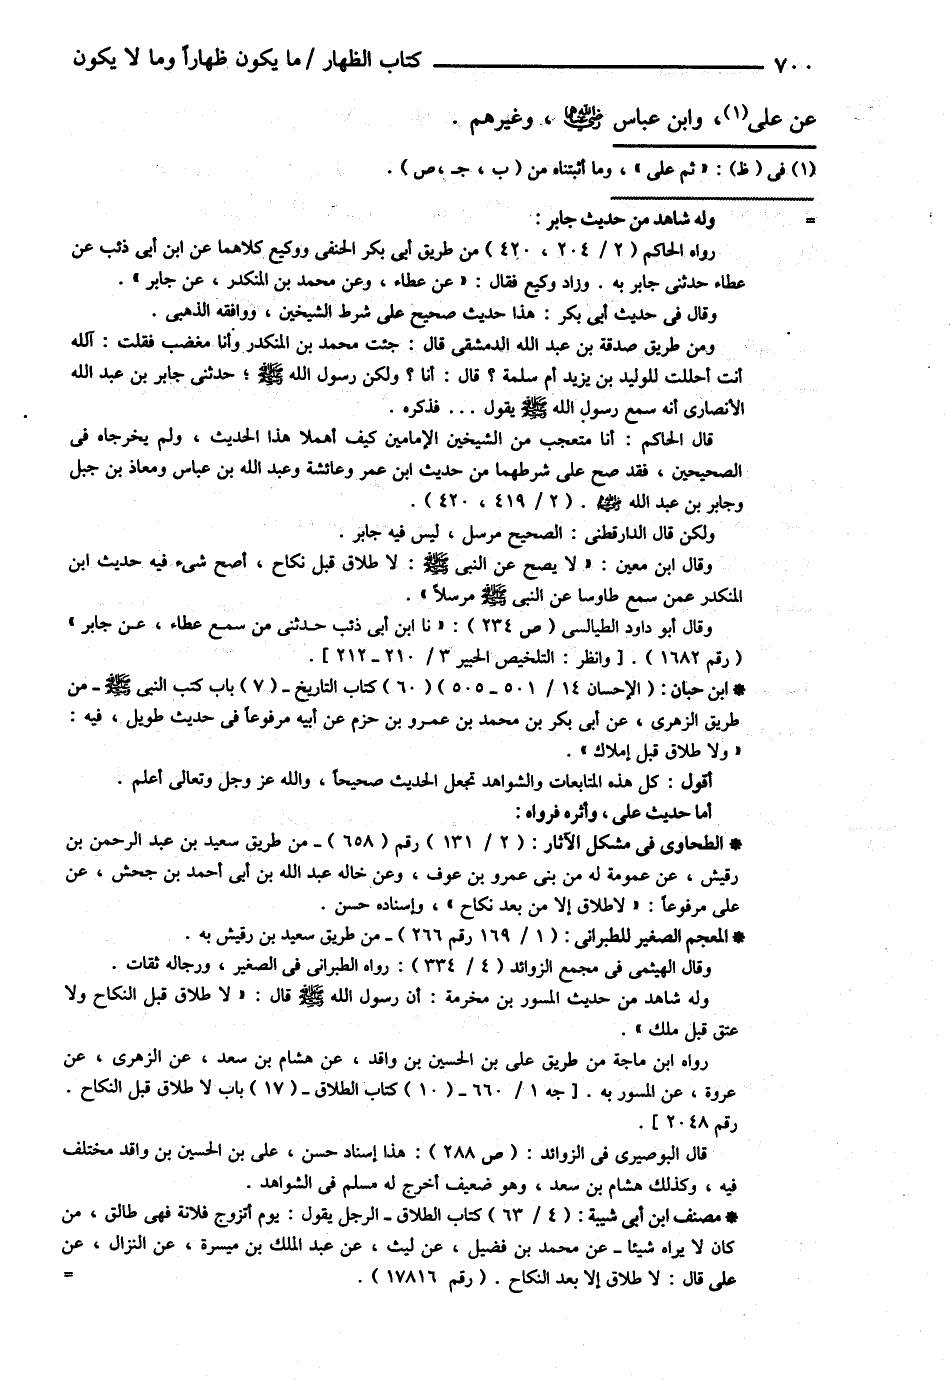 ٧٠٠ ــــــــ كتاب الظهار / ما يكون ظهاراً وما لا يكون
عن على(١)، وابن عباس رضي الله عنهما ، وغيرهم .
(١) فى ( ظ) : « ثم على » ، وما أثبتناه من ( ب ، جـ ،ص ) .
= وله شاهد من حديث جابر :
رواه الحاكم ( ٢ / ٢٠٤ ، ٤٢٠ ) من طريق أبى بكر الحنفى ووكيع كلاهما عن ابن أبى ذئب عن
عطاء حدثنى جابر به . وزاد وكيع فقال : « عن عطاء ، وعن محمد بن المنكدر ، عن جابر » .
وقال فى حديث أبى بكر : هذا حديث صحيح على شرط الشيخين ، ووافقه الذهبى .
ومن طريق صدقة بن عبد الله الدمشقى قال : جئت محمد بن المنكدر وأنا مغضب فقلت : آلله
أنت أحللت للوليد بن يزيد أم سلمة ؟ قال : أنا ؟ ولكن رسول الله ﷺ ؛ حدثنى جابر بن عبد الله
الأنصارى أنه سمع رسول الله ﷺ يقول ... فذكره .
قال الحاكم : أنا متعجب من الشيخين الإمامين كيف أهملا هذا الحديث ، ولم يخرجاه فى
الصحيحين ، فقد صح على شرطهما من حديث ابن عمر وعائشة وعبد الله بن عباس ومعاذ بن جبل
وجابر بن عبد الله . ( ٢ / ٤١٩ ، ٤٢٠ ) .
ولكن قال الدارقطنى : الصحيح مرسل ، ليس فيه جابر .
وقال ابن معين : « لا يصح عن النبى ﷺ : لا طلاق قبل نكاح ، أصح شىء فيه حديث ابن
المنكدر عمن سمع طاوسا عن النبى ﷺ مرسلاً » .
وقال أبو داود الطيالسى ( ص ٢٣٤ ) : « نا ابن أبى ذئب حـدثنى من سمـع عطاء ، عـن جابر »
( رقم ١٦٨٢ ) . [ وانظر : التلخيص الحبير ٣ / ٢١٠ ـ ٢١٢ ] .
* ابن حبان : ( الإحسان ١٤ / ٥٠١ ـ ٥٠٥ ) ( ٦٠ ) كتاب التاريخ ـ ( ٧ ) باب كتب النبى ﷺ ـ من
طريق الزهرى ، عن أبى بكر بن محمد بن عمـرو بن حزم عن أبيه مرفوعاً فى حديث طويل ، فيه :
« ولا طلاق قبل إملاك » .
أقول : كل هذه المتابعات والشواهد تجعل الحديث صحيحاً ، والله عز وجل وتعالى أعلم .
أما حديث على ، وأثره فرواه :
* الطحاوى فى مشكل الآثار : ( ٢ / ١٣١ ) رقم ( ٦٥٨ ) ـ من طريق سعيد بن عبد الرحمن بن
رقيش ، عن عمومة له من بنى عمرو بن عوف ، وعن خاله عبد الله بن أبى أحمد بن جحش ، عن
على مرفوعاً : « لاطلاق إلا من بعد نكاح » ، وإسناده حسن .
* المعجم الصغير للطبرانى : ( ١ / ١٦٩ رقم ٢٦٦ ) ـ من طريق سعيد بن رقيش به .
وقال الهيثمى فى مجمع الزوائد ( ٤ / ٣٣٤ ) : رواه الطبرانى فى الصغير ، ورجاله ثقات .
وله شاهد من حديث المسور بن مخرمة : أن رسول الله ﷺ قال : « لا طلاق قبل النكاح ولا
عتق قبل ملك » .
رواه ابن ماجة من طريق على بن الحسين بن واقد ، عن هشام بن سعد ، عن الزهرى ، عن
عروة ، عن المسور به . [ جه ١ / ٦٦٠ ـ ( ١٠ ) كتاب الطلاق ـ ( ١٧ ) باب لا طلاق قبل النكاح .
رقم ٢٠٤٨ ] .
قال البوصيرى فى الزوائد : ( ص ٢٨٨ ) : هذا إسناد حسن ، على بن الحسين بن واقد مختلف
فيه ، وكذلك هشام بن سعد ، وهو ضعيف أخرج له مسلم فى الشواهد .
* مصنف ابن أبى شيبة : ( ٤ / ٦٣ ) كتاب الطلاق ـ الرجل يقول : يوم أتزوج فلانة فهى طالق ، من
كان لا يراه شيئا ـ عن محمد بن فضيل ، عن ليث ، عن عبد الملك بن ميسرة ، عن النزال ، عن
على قال : لا طلاق إلا بعد النكاح . ( رقم ١٧٨١٦ ) . =